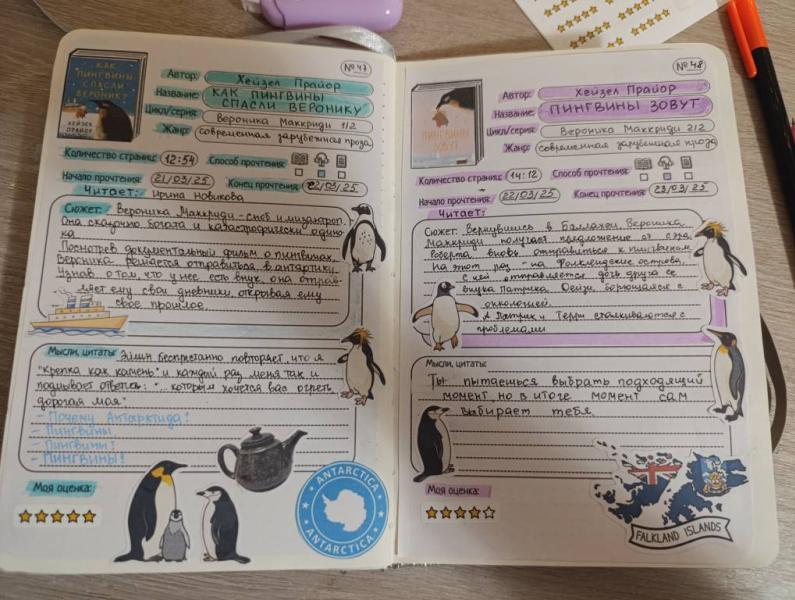 №47
КАК ПИНГВИНЫ СПАСЛИ ВЕРОНИКУ
ХЕЙЗЕЛ ПРАЙОР
Автор: Хейзел Прайор
Название: КАК ПИНГВИНЫ
СПАСЛИ ВЕРОНИКУ
Цикл/серия: Вероника Маккриди 1/2
Жанр: современная зарубежная проза
Количество страниц: 12:54 Способ прочтения:
Начало прочтения: 21/03/25 Конец прочтения: 22/03/25
Читает: Ирина Новикова
Сюжет: Вероника Маккриди - сноб и мизантроп.
Она сказочно богата и катастрофически одино-
ка
Посмотрев документальный фильм о пингвинах,
Вероника решается отправиться в антарктику.
Узнав о том, что у нее есть внук, она отпрв-
ляет ему свои дневники, открывая ему
свое прошлое.
Мысли, цитаты: Эйлин беспрестанно повторяет, что я
"крепка как камень" и каждый раз меня так и
подмывает ответить: "... которым хочется вас огреть,
дорогая моя"
- Почему Антарктида?
- Пингвины.
- Пингвины?
- ПИНГВИНЫ!
Моя оценка:
ANTARCTICA
ANTARCTICA
№48
ПИНГВИНЫ ЗОВУТ
Автор: Хейзел Прайор
Название: ПИНГВИНЫ ЗОВУТ
Цикл/серия: Вероника Маккриди 2/2
Жанр: современная зарубежная проза
Количество страниц: 14:12 Способ прочтения:
Начало прочтения: 22/03/25 Конец прочтения: 23/03/25
Читает:
Сюжет: Вернувшись в Баллахеи Вероника
Маккриди получает предложение от сэра
Роберта вновь отправиться к пингвинам
На этот раз - на Фолклендские острова.
с ней отправляется дочь друга ее
внука Патрика Дейзи, борющаяся с
онкологией.
А Патрик и Терри сталкиваются с
проблемами
Мысли, цитаты:
Ты пытаешься выбрать подходящий
момент, но в итоге момент сам
выбирает тебя.
Моя оценка:
FALKLAND ISLANDS